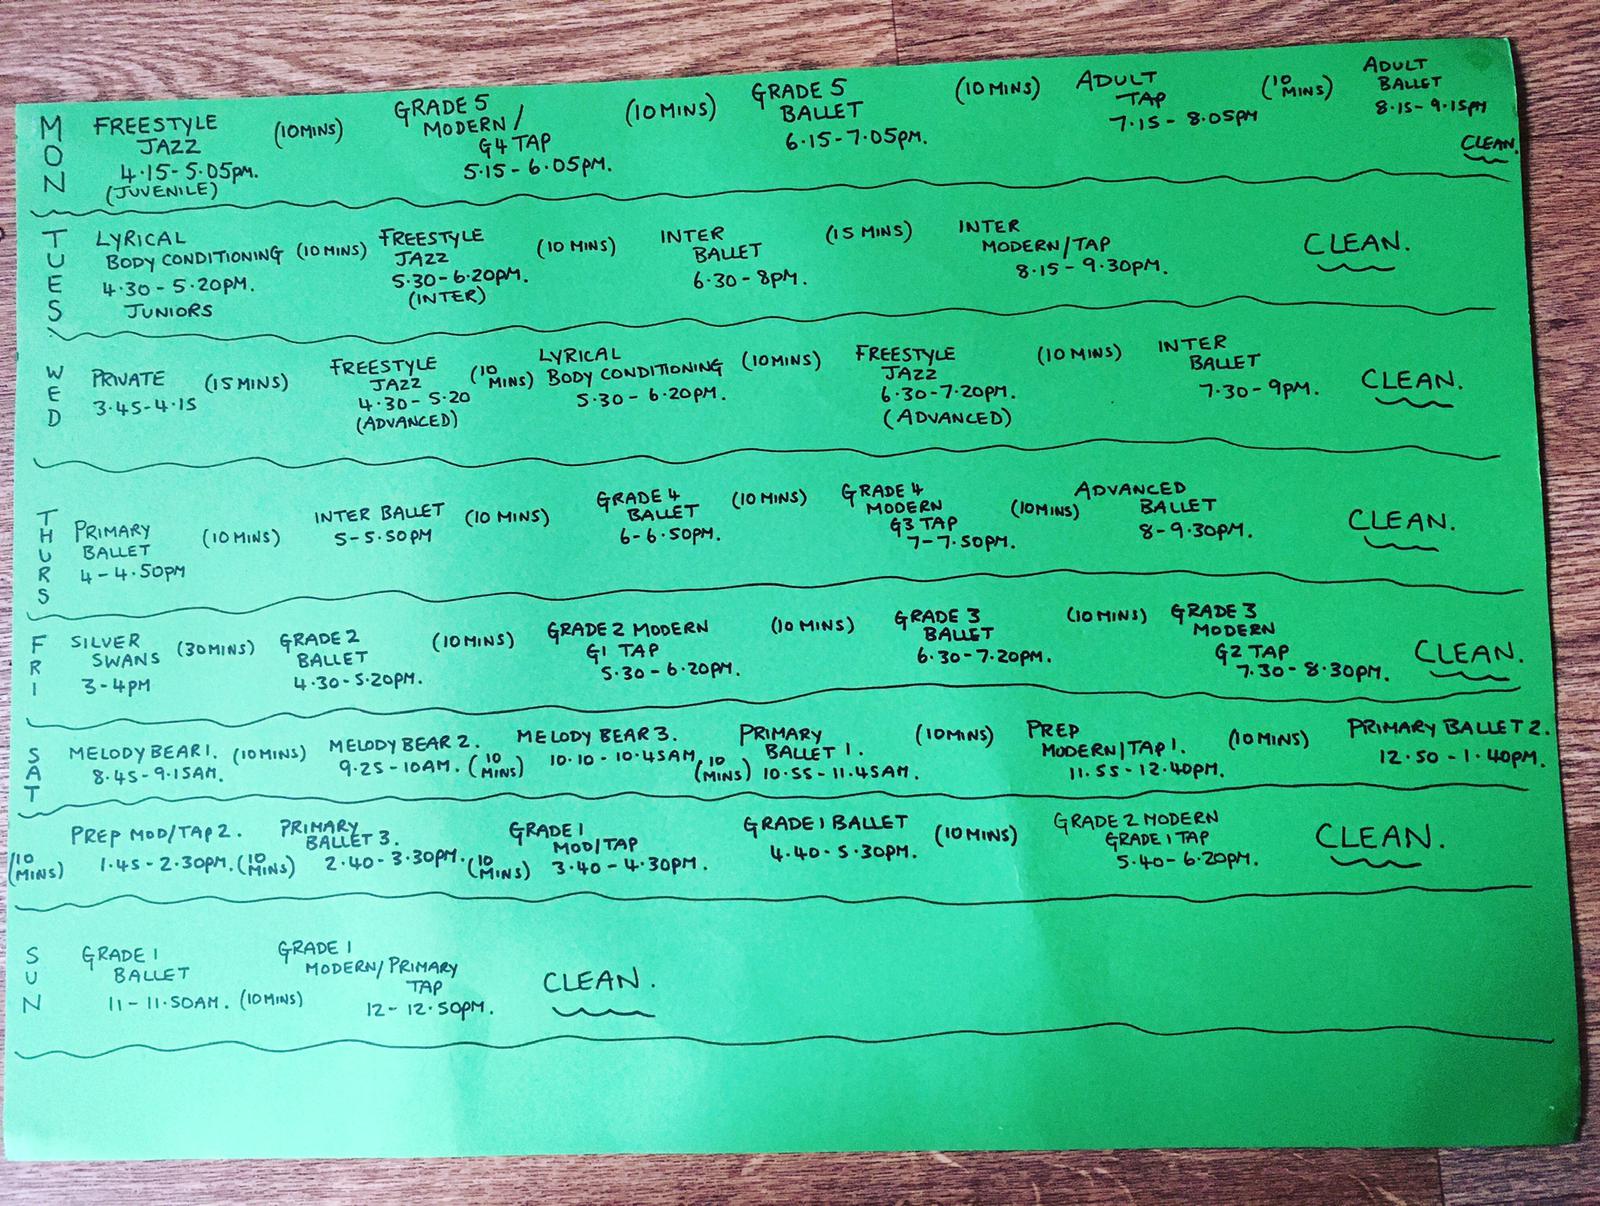 MON
FREESTYLE
JAZZ
4.15-5.05pm.
(JUVENILE)
(10MINS)
GRADE 5
MODERN /
G4 TAP
5.15-6.05PM.
(10MINS)
GRADE 5
BALLET
6.15-7.05PM.
(10 MINS)
ADULT
TAP
7.15-8.05PM
(10
MINS)
ADULT
BALLET
8.15-9.15PM
CLEAN.
TUES
LYRICAL
BODY CONDITIONING
4.30-5.20PM.
JUNIORS
(10 MINS)
FREESTYLE
JAZZ
5.30-6.20PM.
(INTER)
(10 MINS)
INTER
BALLET
6.30-8PM.
(15 MINS)
INTER
MODERN/TAP
8.15-9.30PM.
CLEAN.
WED
PRIVATE
3.45-4.15
(15 MINS)
FREESTYLE
JAZZ
4.30-5.20
(ADVANCED)
(10
MINS)
LYRICAL
BODY CONDITIONING
5.30-6.20PM.
(10MINS)
FREESTYLE
JAZZ
6.30-7.20PM.
(ADVANCED)
(10 MINS)
INTER
BALLET
7.30-9PM.
CLEAN.
THURS
PRIMARY
BALLET
4-4.50PM
(10 MINS)
INTER BALLET
5-5.50PM
(10 MINS)
GRADE 4
BALLET
6-6.50PM.
(10 MINS)
GRADE 4
MODERN
G3 TAP
7-7.50PM.
(10MINS)
ADVANCED
BALLET
8-9.30PM.
CLEAN.
FRI
SILVER
SWANS
3-4PM
(30MINS)
GRADE 2
BALLET
4.30-5.20PM.
(10MINS)
GRADE 2 MODERN
G1 TAP
5.30-6.20PM.
(10 MINS)
GRADE 3
BALLET
6.30-7.20PM.
(10MINS)
GRADE 3
MODERN
G2 TAP
7.30-8.30PM.
CLEAN.
SAT
MELODY BEAR 1.
8.45-9.15AM.
(10MINS)
MELODY BEAR 2.
9.25-10AM.
(10
MINS)
MELODY BEAR 3.
10.10-10.45AM.
(10
MINS)
PRIMARY
BALLET 1.
10.55-11.45AM.
(10MINS)
PREP
MODERN/TAP 1.
11.55-12.40PM.
(10MINS)
PRIMARY BALLET 2.
12.50-1.40PM.
(10
MINS)
PREP MOD/TAP 2.
1.45-2.30PM.
(10
MINS)
PRIMARY
BALLET 3.
2.40-3.30PM.
(10
MINS)
GRADE 1
MOD/TAP
3.40-4.30PM.
GRADE 1 BALLET
4.40-5.30PM.
(10MINS)
GRADE 2 MODERN
GRADE 1 TAP
5.40-6.20PM.
CLEAN.
SUN
GRADE 1
BALLET
11-11.50AM.
(10MINS)
GRADE 1
MODERN/PRIMARY
TAP
12-12.50PM.
CLEAN.